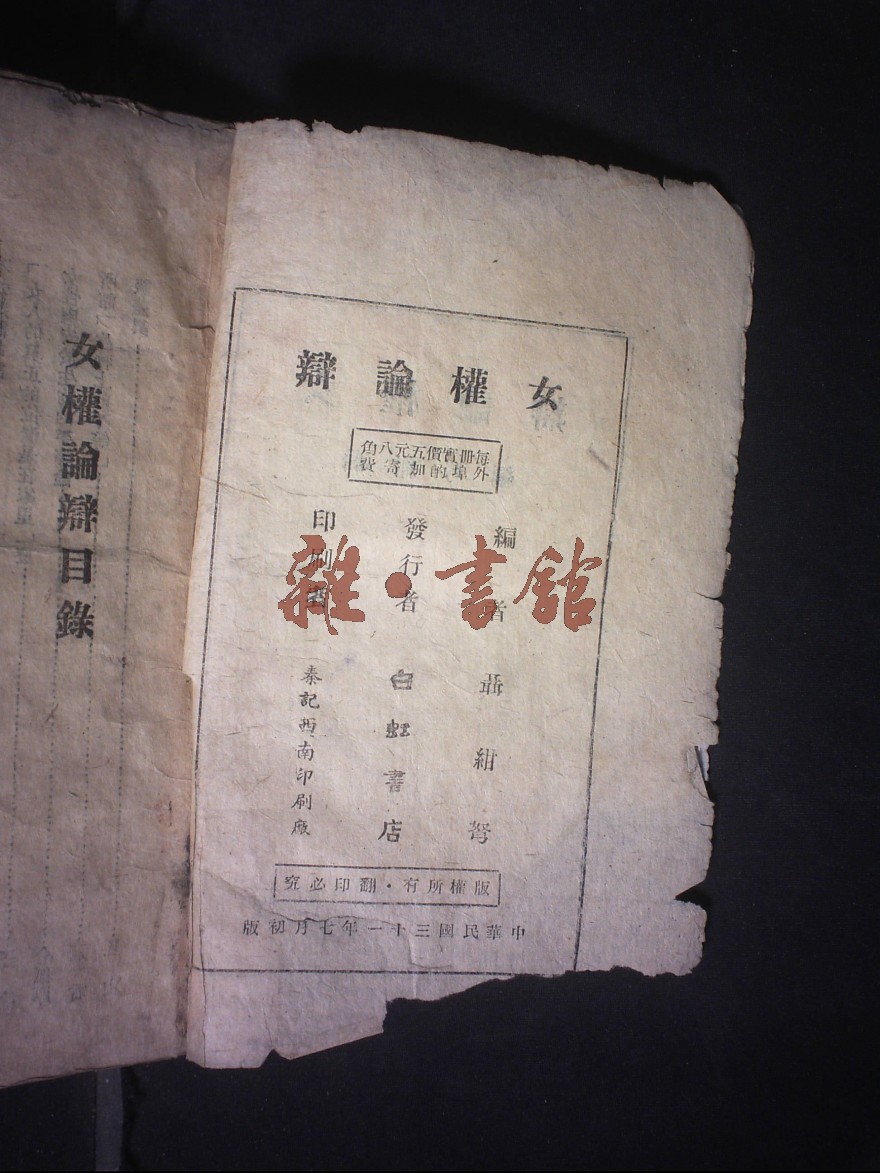 女權論辯
每冊實價五元八角
外埠酌加寄費
編者 聶紺弩
發行者 白虹書店
印刷者 秦記西南印刷廠
版權所有・翻印必究
中華民國三十一年七月初版
女權論辯目錄
雜・書館